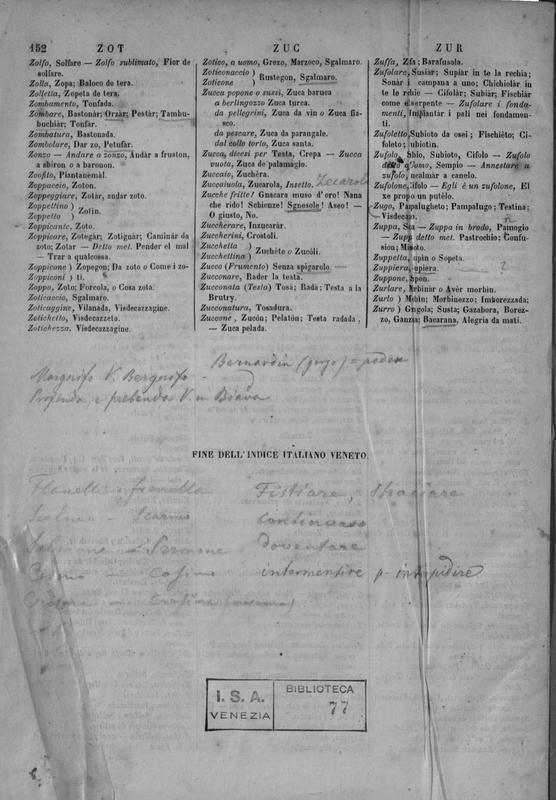 152 ZOT ZUC ZUR
Zolfo, Solfare — Zolfo sublimato, Fior de
solfare.
Zolla, Zopa; Baloco de tera.
Zolletta, Zopeta de tera.
Zombamento, Tonfada.
Zombare, Bastonàr; Orzàr; Pestàr; Tambu-
buchiàr; Tonfàr.
Zombatura, Bastonada.
Zombolare, Dar zo, Petufar.
Zonzo — Andare a zonzo, Andàr a fruston,
a sbiron o a baronon.
Zoofito, Piantanèmàl.
Zoppaccio, Zoton.
Zoppeggiare, Zotàr, andar zoto.
Zoppettino )
Zoppetto ) Zotin.
Zoppicante, Zoto.
Zoppicare, Zotegàr; Zotignàr; Caminàr da
zoto; Zotar — Detto met. Pender el mal
— Trar a qualcossa.
Zoppicone ) Zopegon; Da zoto o Come i zo-
Zoppiconi ) ti.
Zoppo, Zoto; Forcola, o Cosa zota.
Zoticaccio, Sgalmaro.
Zoticaggine, Vilanada, Visdecazzagine.
Zotichetto, Visdecazzeto.
Zotichezza, Visdecazzagine.
Zotico, a uomo, Grezo, Marzoco, Sgalmaro.
Zoticonaccio )
Zoticone ) Rustegon, Sgalmaro.
Zucca popone o suzzi, Zuca baruca
a berlingozzo Zuca turca.
da pellegrini, Zuca da vin o Zuca fia-
sco.
da pescare, Zuca da parangale.
dal collo torto, Zuca santa.
Zucca, dicesi per Testa, Crepa — Zucca
vuota, Zuca de palamagio.
Zuccaio, Zuchèra.
Zuccaiuola, Zucarola, Insetto. Zecarola
Zucche fritte! Gnacara muso d' oro! Nana
che rido! Schienze! Sgnesole! Aseo! —
O giusto, No.
Zuccherare, Inzucaràr.
Zuccherini, Crostoli.
Zucchetta )
Zucchettina ) Zuchète o Zucóli.
Zucco (Frumento) Senza spigarolo.
Zucconare, Rader la testa.
Zucconata (Testa) Tosà; Radà; Testa a la
Brutry.
Zucconatura, Tosadura.
Zuccone, Zucón; Pelatón; Testa radada,
— Zuca pelada.
Zuffa, Zfa; Barafusola.
Zufolare, Susiar; Supiar in te la rechia;
Sonàr i campana a uno; Chichiolàr in
te le rchie — Cifolàr; Subiar; Fischiàr
come el serpente — Zufolare i fonda-
menti, Implantàr i pali nei fondamen-
ti.
Zufoletto, Subioto da osei; Fischièto; Ci-
foleto; ubiotin.
Zufolo, Sbio, Subioto, Cifolo — Zufolo
detto d'uomo, Sempio — Annestare a
zufolo, ncalmàr a canelo.
Zufolone, Zifolo — Egli è un zufolone, El
xe propo un putèlo.
Zugo, Papalugheto; Pampalugo; Testina;
Visdecazo.
Zuppa, Sua — Zuppa in brodo, Pamogio
— Zupp detto met. Pastrochio; Confu-
sion; Misoto.
Zuppetta, upin o Sopeta.
Zuppiera, upièra.
Zuppone, Spon.
Zurlare, Morbinir o Avèr morbin.
Zurlo ) Mrbin; Morbinezzo; Imborezzada;
Zurro ) Gngola; Susta; Gazabora, Borez-
zo, Ganzia; Bacarana, Alegria da mati.
Bernardin (gergo) =
Margnifo V. Bergnifo
Profenda, e prebenda V. in Biava
FINE DELL'INDICE ITALIANO VENETO.
Fistiare,
continuare
Salmone — Sermone Doventare
intermentire p. intrepidire
I. S. A.
VENEZIA
BIBLIOTECA
77